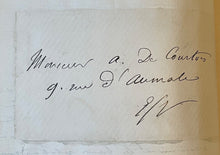 Monsieur A. De Courtois
9. rue d'Aumale
E/V